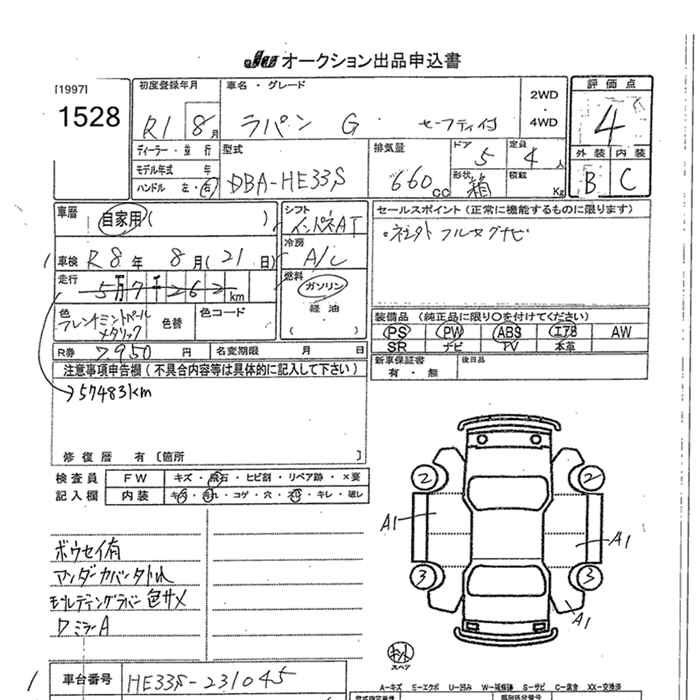 JU オークション出品申込書
[1997]
1528
初度登録年月
R1 8月
車名・グレード
ラパン G セーフティ付
2WD
・
4WD
評価点
4
外装 内装
B C
ディーラー・並行
モデル年式 年
ハンドル 左・右
型式
DBA-HE33S
排気量
660cc
ドア
5
定員
4人
形状
箱
積載
Kg
車歴
自家用( )
シフト
インパネAT
セールスポイント(正常に機能するものに限ります)
車検 R8年 8月(21日)
冷房
A/C
走行
5万7千262km
燃料
ガソリン
軽油
( )
色
フレンチミントパールメタリック
色替
色コード
装備品(純正品に限り○を付けてください)
PS PW ABS エアB AW
SR ナビ TV 本革
R券 7950円
名変期限 月 日
新車保証書
有・無
後日品
注意事項申告欄(不具合内容等は具体的に記入して下さい)
→57483km
修復歴 有〔箇所 〕
検査員
記入欄
FW キズ・飛石・ヒビ割・リペア跡・×要
内装 キズ・汚れ・コゲ・穴・スレ・キレ・破レ
ボウセイ有
アンダーカバータトレ
モールディングラバー色サメ
ワミラーA
2
2
A1
A1
3
3
A1
スペア
車台番号 HE33S-231045
A-キズ E-エクボ U-凹み S-サビ C-腐食 XX-交換済